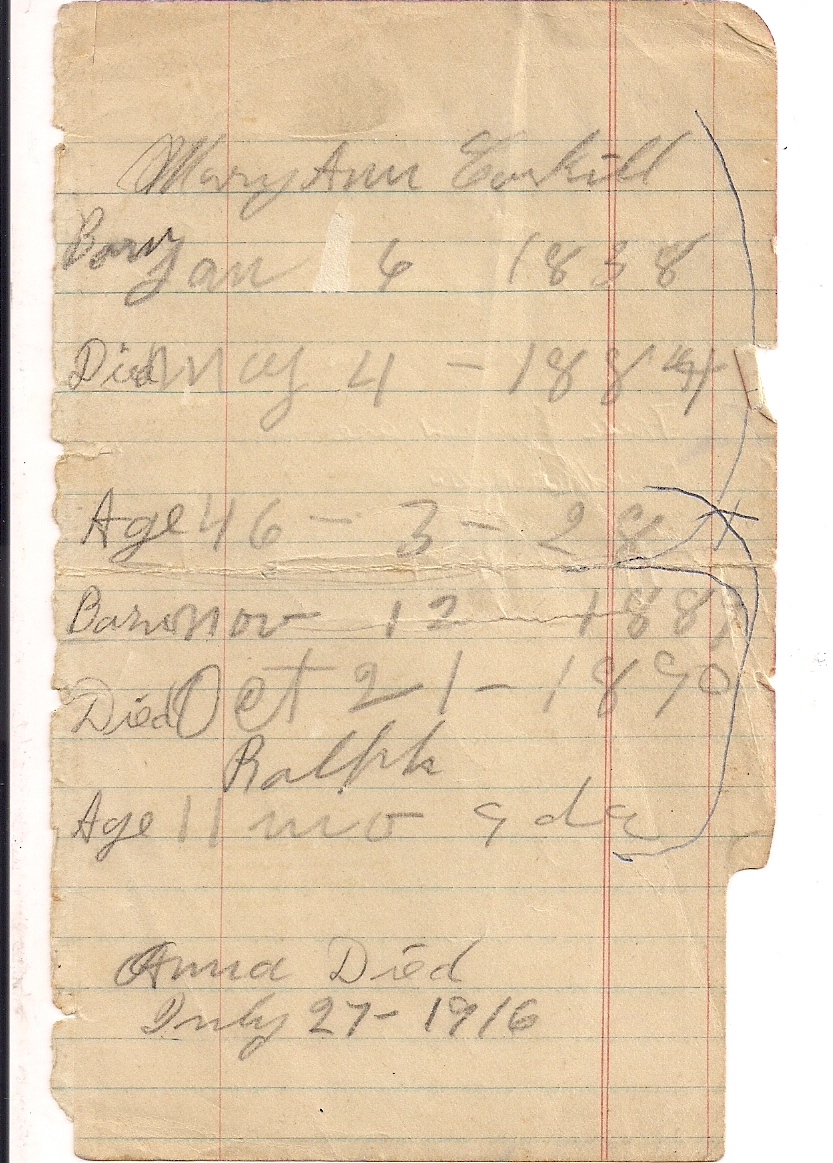 Mary Ann Corkill
Born Jan 6 1838
Died May 4 - 1884
Age 46 - 3 - 28
Born Nov 12 - 188
Died Oct 21 - 1890
Ralph
Age 11 mo 9 da
Anna Died
July 27 - 1916